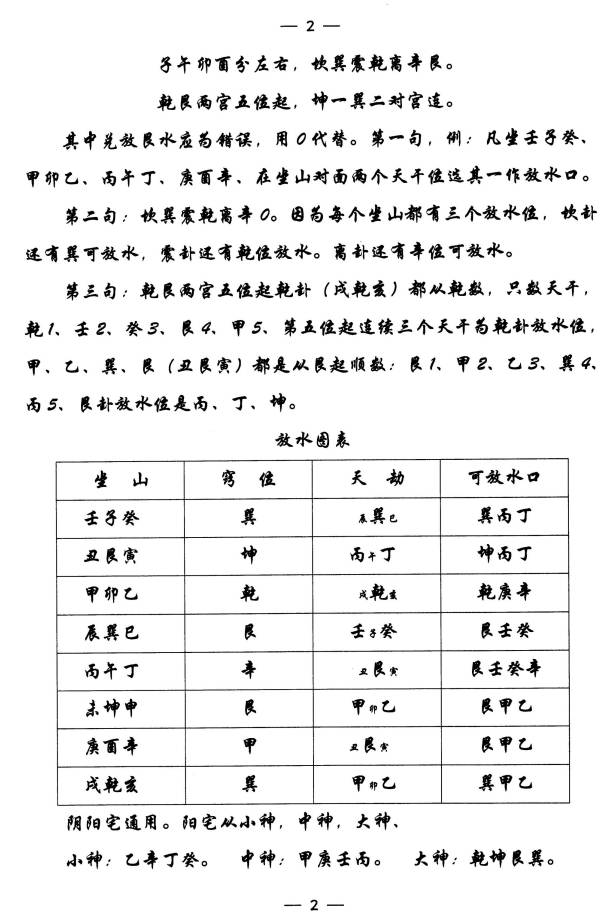 — 2 —
子午卯酉分左右，坎巽震乾离辛艮。
乾艮两宫五位起，坤一巽二对宫连。
其中兑放艮水应为错误，用0代替。第一句，例：凡坐壬子癸、
甲卯乙、丙午丁、庚酉辛、在坐山对面两个天干位选其一作放水口。
第二句：坎巽震乾离辛0。因为每个坐山都有三个放水位，坎卦
还有巽可放水，震卦还有乾位放水。离卦还有辛位可放水。
第三句：乾艮两宫五位起乾卦（戌乾亥）都从乾数，只数天干，
乾1、壬2、癸3、艮4、甲5、第五位起连续三个天干为乾卦放水位，
甲、乙、巽、艮（丑艮寅）都是从艮起顺数：艮1、甲2、乙3、巽4、
丙5、艮卦放水位是丙、丁、坤。
放水图表
坐 山 窍 位 天 劫 可放水口
壬子癸 巽 辰巽巳 巽丙丁
丑艮寅 坤 丙午丁 坤丙丁
甲卯乙 乾 戌乾亥 乾庚辛
辰巽巳 艮 壬子癸 艮壬癸
丙午丁 辛 丑艮寅 艮壬癸辛
未坤申 艮 甲卯乙 艮甲乙
庚酉辛 甲 丑艮寅 艮甲乙
戌乾亥 巽 甲卯乙 巽甲乙
阴阳宅通用。阳宅从小神，中神，大神、
小神：乙辛丁癸。 中神：甲庚壬丙。 大神：乾坤艮巽。
— 2 —